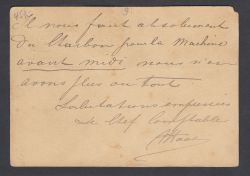 Il nous faut absolument
du Charbon pour la Machine
avant midi nous n'en
avons plus du tout
Salutations empressées
Le Chef Comptable